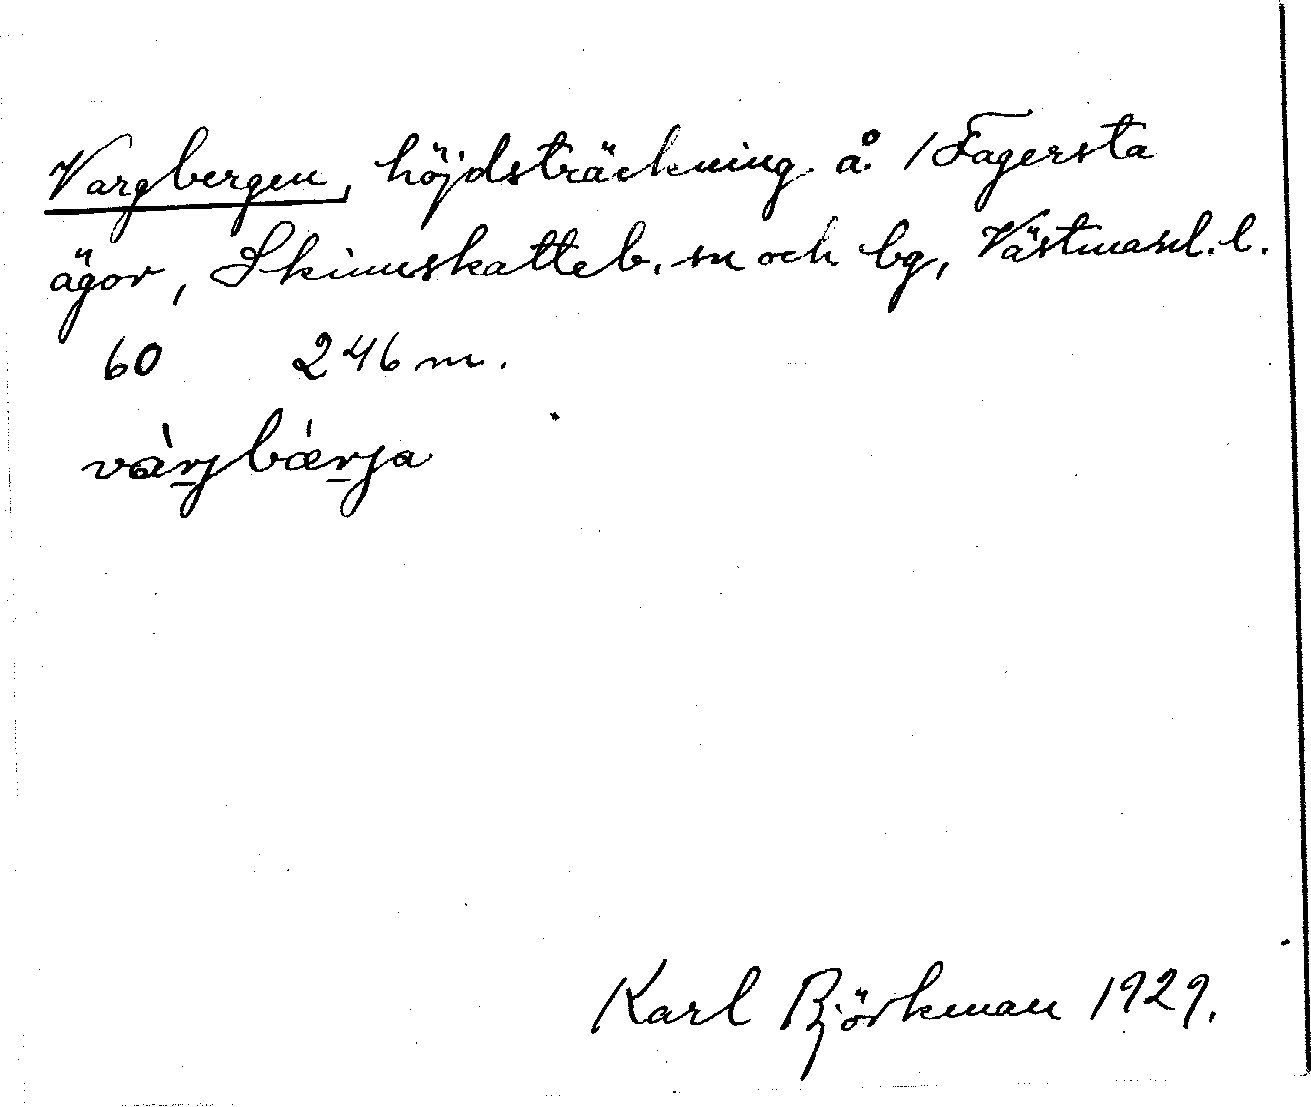 Vargbergen, höjdsträckning å /Fagersta
ägor, Skinnskatteb. sn och bg, Västmanl. l.
60 246 m.
và̱rjbá̱rja
Karl Björkman 1929.